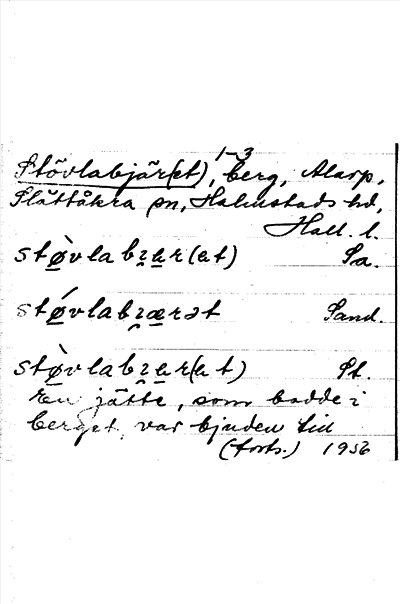 1-3
Stövlabjär(et), berg, Alarp,
Slättåkra sn, Halmstads hd,
Hall. l.
støvlabɪær(et) Sa.
støvlabɪærət Sand.
støvlabɪær(et) St.
En jätte, som bodde i
berget, var bjuden till
(forts.) 1956